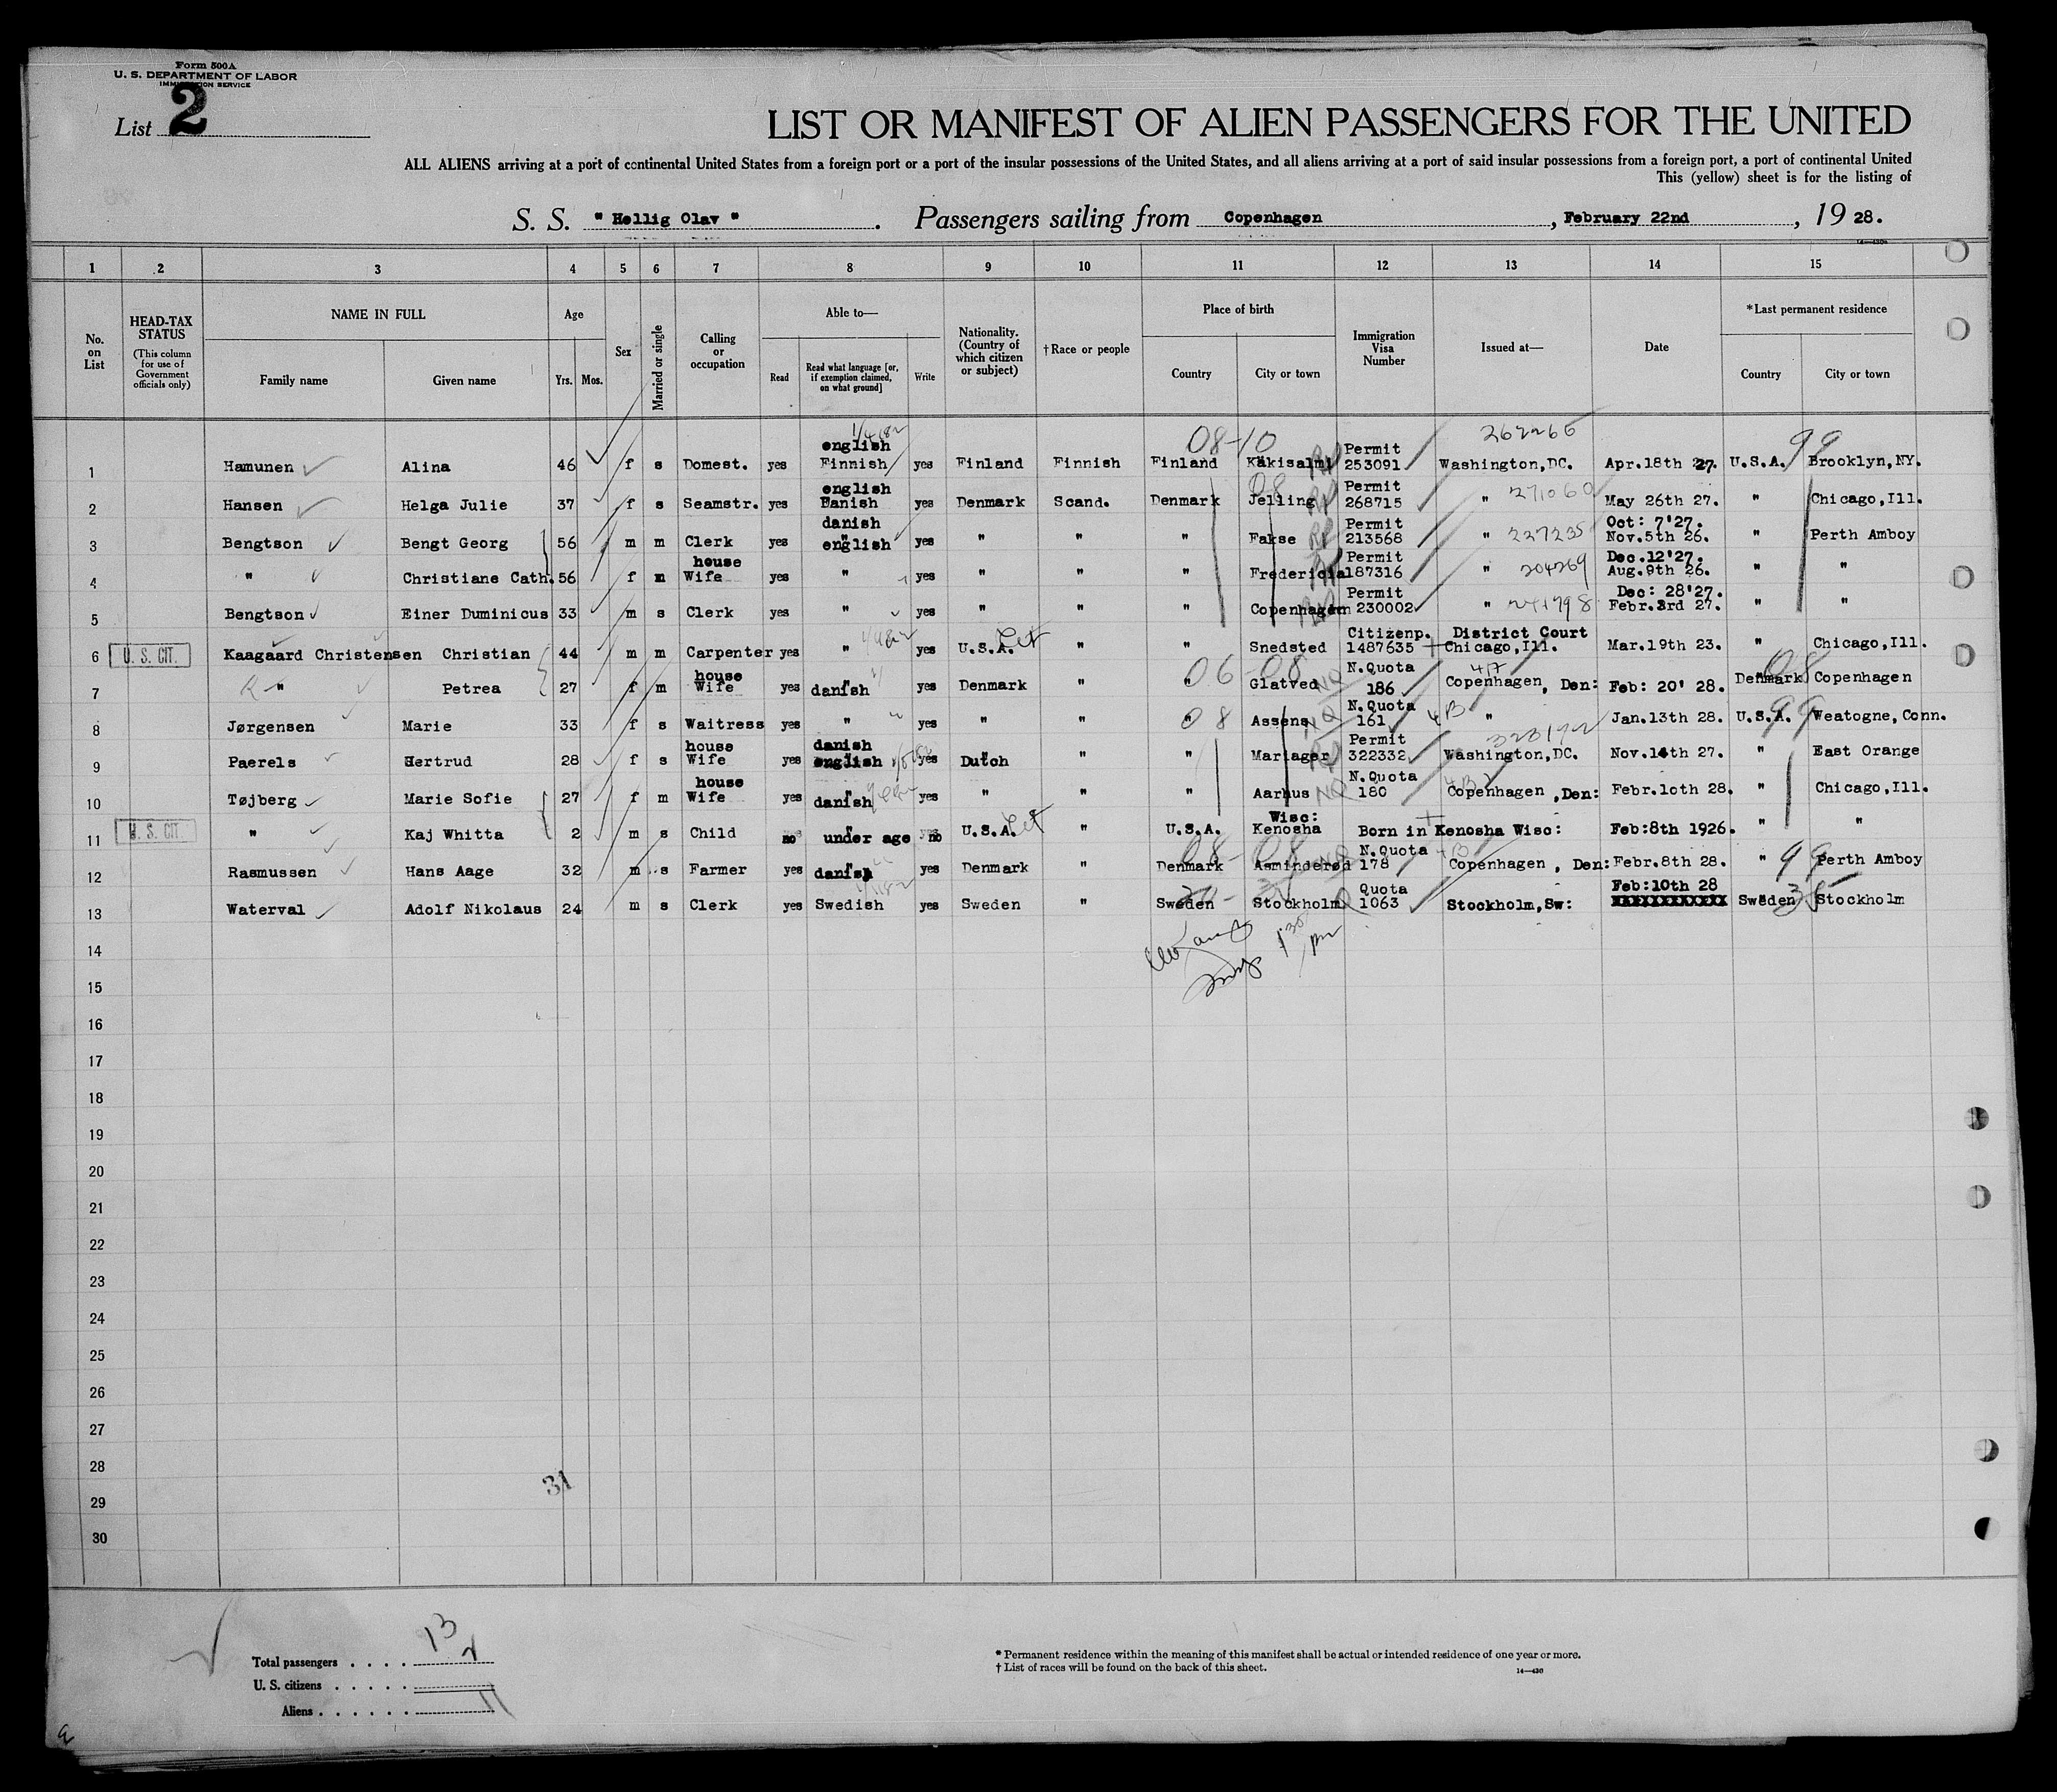 Form 500A
U. S. DEPARTMENT OF LABOR
IMMIGRATION SERVICE
List 2
LIST OR MANIFEST OF ALIEN PASSENGERS FOR THE UNITED
ALL ALIENS arriving at a port of continental United States from a foreign port or a port of the insular possessions of the United States, and all aliens arriving at a port of said insular possessions from a foreign port, a port of continental United
This (yellow) sheet is for the listing of
S. S. " Hellig Olav " . Passengers sailing from Copenhagen , February 22nd , 19 28.
1 2 3 4 5 6 7 8 9 10 11 12 13 14 15
No. on List
HEAD-TAX STATUS (This column for use of Government officials only)
NAME IN FULL Family name Given name
Age Yrs. Mos.
Sex
Married or single
Calling or occupation
Able to— Read Read what language [or, if exemption claimed, on what ground] Write
Nationality. (Country of which citizen or subject)
† Race or people
Place of birth Country City or town
Immigration Visa Number
Issued at—
Date
*Last permanent residence Country City or town
08-10 262266 99
english Permit
1 Hamunen Alina 46 f s Domest. yes Finnish yes Finland Finnish Finland Käkisalmi 253091 Washington,DC. Apr.18th 27. U.S.A. Brooklyn,NY.
english Permit
2 Hansen Helga Julie 37 f s Seamstr. yes Danish yes Denmark Scand. Denmark Jelling 268715 " 271060 May 26th 27. " Chicago,Ill.
danish Permit Oct: 7'27.
3 Bengtson Bengt Georg 56 m m Clerk yes english yes " " " Fakse 213568 " 227235 Nov.5th 26. " Perth Amboy
house Permit Dec.12'27.
4 " Christiane Cath. 56 f m Wife yes " yes " " " Fredericia 187316 " 204269 Aug.9th 26. " "
Permit Dec: 28'27.
5 Bengtson Einer Duminicus 33 m s Clerk yes " yes " " " Copenhagen 230002 " 241798 Febr.3rd 27. " "
Citizenp. District Court
6 U. S. CIT. Kaagaard Christensen Christian 44 m m Carpenter yes " yes U.S.A. " " Snedsted 1487635 Chicago,Ill. Mar.19th 23. " Chicago,Ill.
house 06-08 N.Quota 08
7 " Petrea 27 f m Wife yes danish yes Denmark " " Glatved NQ 186 Copenhagen , Den: Feb: 20' 28. Denmark Copenhagen
08 N.Quota 4B 99
8 Jørgensen Marie 33 f s Waitress yes " yes " " " Assens NQ 161 " Jan.13th 28. U.S.A. Weatogne,Conn.
house danish Permit 323192
9 Paerels Hertrud 28 f s Wife yes english yes Dutch " " Mariager 322332 Washington,DC. Nov.14th 27. " East Orange
house N.Quota
10 Tøjberg Marie Sofie 27 f m Wife yes danish yes " " " Aarhus NQ 180 Copenhagen ,Den: Febr.10th 28. " Chicago,Ill.
Wisc:
11 U. S. CIT. " Kaj Whitta 2 m s Child no under age no U.S.A. " U.S.A. Kenosha Born in Kenosha Wisc: Feb:8th 1926. " "
08-08 N.Quota 99
12 Rasmussen Hans Aage 32 m s Farmer yes danish yes Denmark " Denmark Asminderød 178 Copenhagen , Den: Febr.8th 28. " Perth Amboy
Quota Feb:10th 28
13 Waterval Adolf Nikolaus 24 m s Clerk yes Swedish yes Sweden " Sweden Stockholm 1063 Stockholm,Sw: XXXXXXXXXXXX Sweden Stockholm
14
15
16
17
18
19
20
21
22
23
24
25
26
27
28
29
30
31
Total passengers . . . . 13
U. S. citizens . . . . . 2
Aliens . . . . . . 11
* Permanent residence within the meaning of this manifest shall be actual or intended residence of one year or more.
† List of races will be found on the back of this sheet.
14—430